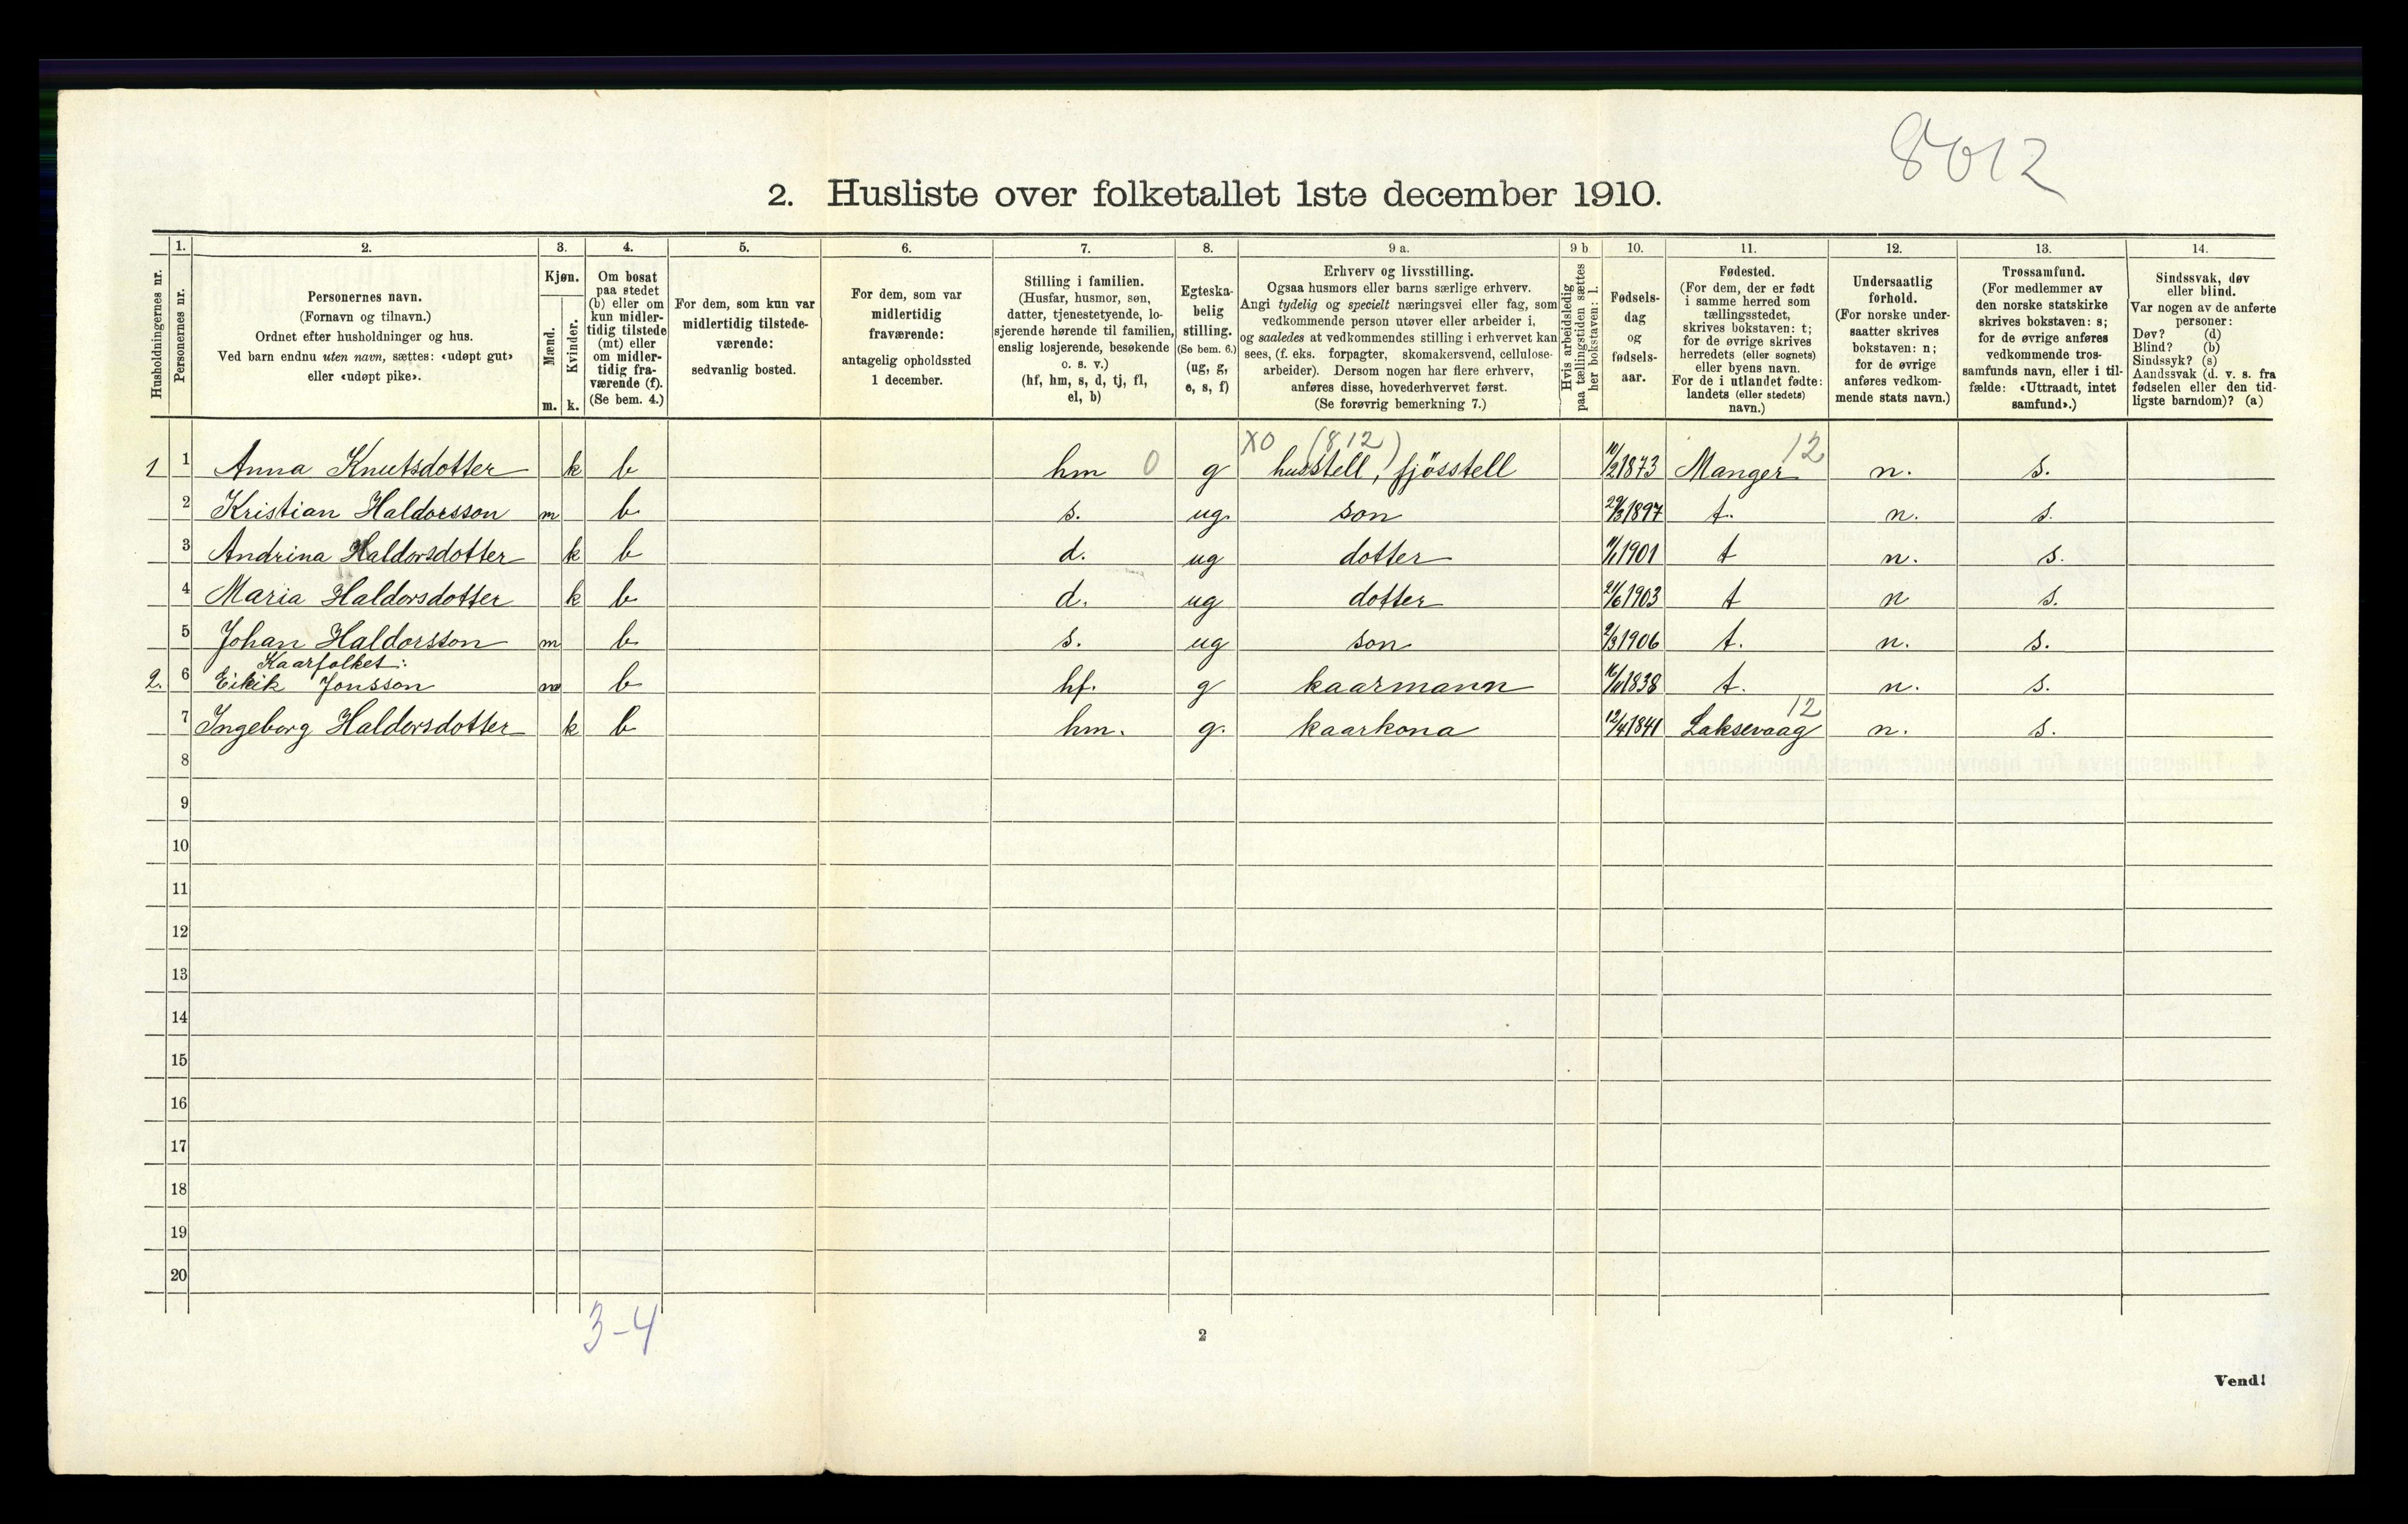 8012
2. Husliste over folketallet 1ste december 1910.
Husholdningernes nr.
1.
Personernes nr.
2.
Personernes navn.
(Fornavn og tilnavn.)
Ordnet efter husholdninger og hus.
Ved barn endnu uten navn, sættes: «udøpt gut»
eller «udøpt pike».
3.
Kjøn.
Mænd.
m.
Kvinder.
k.
4.
Om bosat
paa stedet
(b) eller om
kun midler-
tidig tilstede
(mt) eller
om midler-
tidig fra-
værende (f).
(Se bem. 4.)
5.
For dem, som kun var
midlertidig tilstede-
værende:
sedvanlig bosted.
6.
For dem, som var
midlertidig
fraværende:
antagelig opholdssted
1 december.
7.
Stilling i familien.
(Husfar, husmor, søn,
datter, tjenestetyende, lo-
sjerende hørende til familien,
enslig losjerende, besøkende
o. s. v.)
(hf, hm, s, d, tj, fl,
el, b)
8.
Egteska-
belig
stilling.
(Se bem. 6.)
(ug, g,
e, s, f)
9 a.
Erhverv og livsstilling.
Ogsaa husmors eller barns særlige erhverv.
Angi tydelig og specielt næringsvei eller fag, som
vedkommende person utøver eller arbeider i,
og saaledes at vedkommendes stilling i erhvervet kan
sees, (f. eks. forpagter, skomakersvend, cellulose-
arbeider). Dersom nogen har flere erhverv,
anføres disse, hovederhvervet først.
(Se forøvrig bemerkning 7.)
9 b
Hvis arbeidsledig
paa tællingstiden sættes
her bokstaven: l.
10.
Fødsels-
dag
og
fødsels-
aar.
11.
Fødested.
(For dem, der er født
i samme herred som
tællingsstedet,
skrives bokstaven: t;
for de øvrige skrives
herredets (eller sognets)
eller byens navn.
For de i utlandet fødte:
landets (eller stedets)
navn.)
12.
Undersaatlig
forhold.
(For norske under-
saatter skrives
bokstaven: n;
for de øvrige
anføres vedkom-
mende stats navn.)
13.
Trossamfund.
(For medlemmer av
den norske statskirke
skrives bokstaven: s;
for de øvrige anføres
vedkommende tros-
samfunds navn, eller i til-
fælde: «Uttraadt, intet
samfund».)
14.
Sindssvak, døv
eller blind.
Var nogen av de anførte
personer:
Døv? (d)
Blind? (b)
Sindssyk? (s)
Aandssvak (d. v. s. fra
fødselen eller den tid-
ligste barndom)? (a)
X0 (812) 12
1 1 Anna Knutsdotter k b hm 0 g husstell, fjösstell 10/2 1873 Manger n. s.
2 Kristian Haldorsson m b s. ug. son 29/3 1897 t. n. s.
3 Andrina Haldorsdotter k b d. ug dotter 1901 t n. s.
4 Maria Haldorsdotter k b d. ug dotter 21/6 1903 t n s.
5 Johan Haldorsson m b s. ug son 2/3 1906 t. n. s.
Kaarfolket:
2. 6 Eirik Jonsson m b hf. g kaarmann 1838 t. n. s.
12
7 Ingeborg Haldorsdotter k b hm. g. kaarkona 12/4 1841 Laksevaag n. s.
8
9
10
11
12
13
14
15
16
17
18
19
20
3-4
2
Vend!